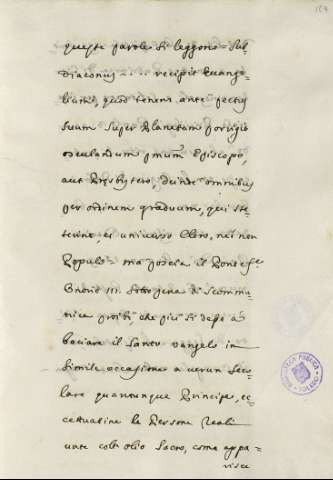 queste parole si leggono = Sub=
Diaconus recipit Evange=
lium, quod tenens ante pectus
suum super Planetam porrigit
osculandum primum Episcopo,
aut Presbytero, deinde omnibus
per ordinem graduum, qui ste=
terint, et universo Clero, nec non
Populo = ma poscia il Pontefe.
Onorio III. sotto pena di Scommu=
nica proibì, che più si desse a
baciare il Santo Vangelo in
simile occasione a verun Seco=
lare quantunque Principe, ec=
cettuatine le Persone Reali
unte coll' olio Sacro, come appa=
risce